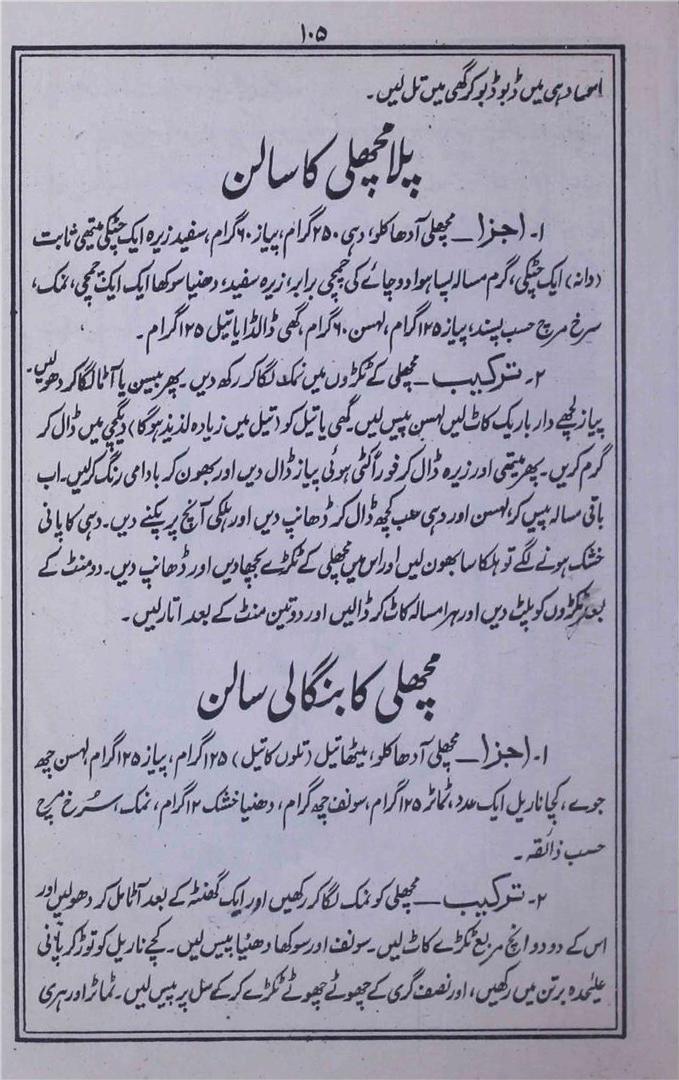 ۱۰۵
دہی میں ڈبو ڈبو کر گھی میں تل لیں۔
پلا مچھلی کا سالن
۱۔ اجزا — مچھلی آدھا کلو، دہی ۲۵۰ گرام، پیاز ۶۰ گرام، سفید زیرہ ایک چٹکی میتھی ثابت
(دانہ) ایک چٹکی، گرم مسالہ پسا ہوا دو چائے کی چمچی برابر، زیرہ سفید، دھنیا سوکھا ایک ایک چمچی، نمک،
سرخ مرچ حسب پسند، پیاز ۱۲۵ گرام، لہسن ۶۰ گرام، گھی ڈالڈا یا تیل ۱۲۵ گرام۔
۲۔ ترکیب — مچھلی کے ٹکڑوں میں نمک لگا کر رکھ دیں۔ پھر بیسن یا آٹا لگا کر دھو لیں۔
پیاز لچھے دار باریک کاٹ لیں لہسن پیس لیں۔ گھی یا تیل کو (تیل میں زیادہ لذیذ ہوگا) دیگچی میں ڈال کر
گرم کریں۔ پھر میتھی اور زیرہ ڈال کر فوراً کٹی ہوئی پیاز ڈال دیں اور بھون کر بادامی رنگ کر لیں۔ اب
باقی مسالہ پیس کر، لہسن اور دہی سب کچھ ڈال کر ڈھانپ دیں اور ہلکی آنچ پر پکنے دیں۔ دہی کا پانی
خشک ہونے لگے تو ہلکا سا بھون لیں اور اس میں مچھلی کے ٹکڑے بچھا دیں اور ڈھانپ دیں۔ دو منٹ کے
بعد ٹکڑوں کو پلٹ دیں اور ہرا مسالہ کاٹ کر ڈالیں اور دو تین منٹ کے بعد اتار لیں۔
مچھلی کا بنگالی سالن
۱۔ اجزا — مچھلی آدھا کلو، میٹھا تیل (تلوں کا تیل) ۱۲۵ گرام، پیاز ۱۲۵ گرام لہسن چھ
جوے، کچا ناریل ایک عدد، ٹماٹر ۱۲۵ گرام، سونف چھ گرام، دھنیا خشک ۱۲ گرام، نمک، سُرخ مرچ
حسب ذائقہ۔
۲۔ ترکیب — مچھلی کو نمک لگا کر رکھیں اور ایک گھنٹہ کے بعد آٹا مل کر دھو لیں اور
اس کے دو دو انچ مربع ٹکڑے کاٹ لیں۔ سونف اور سوکھا دھنیا پیس لیں۔ کچے ناریل کو توڑ کر پانی
علیٰحدہ برتن میں رکھیں، اور نصف گری کے چھوٹے چھوٹے ٹکڑے کر کے سل پر پیس لیں۔ ٹماٹر اور ہری